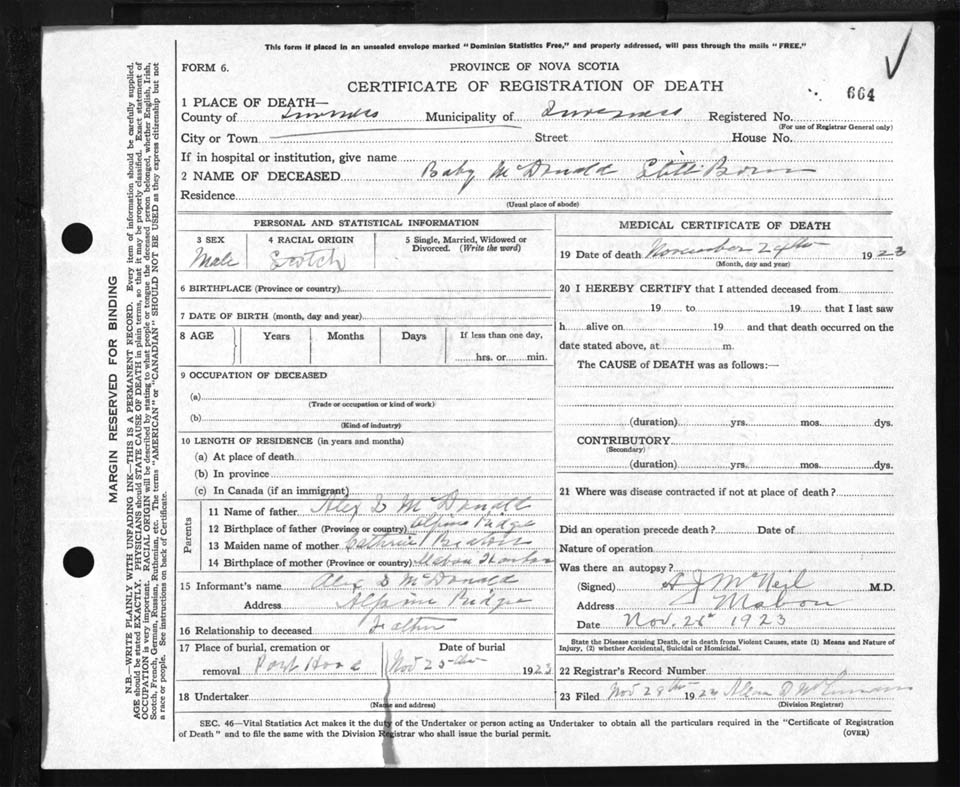 This form if placed in an unsealed envelope marked "Dominion Statistics Free," and properly addressed, will pass through the mails "FREE."
FORM 6.
PROVINCE OF NOVA SCOTIA
CERTIFICATE OF REGISTRATION OF DEATH
664
1 PLACE OF DEATH—
County of Inverness Municipality of Inverness Registered No.
(For use of Registrar General only)
City or Town Street House No.
If in hospital or institution, give name
2 NAME OF DECEASED Baby McDonald Still Born
Residence
(Usual place of abode)
PERSONAL AND STATISTICAL INFORMATION
3 SEX 4 RACIAL ORIGIN 5 Single, Married, Widowed or Divorced. (Write the word)
Male Scotch
6 BIRTHPLACE (Province or country)
7 DATE OF BIRTH (month, day and year)
8 AGE Years Months Days If less than one day,
hrs. or min.
9 OCCUPATION OF DECEASED
(a)
(Trade or occupation or kind of work)
(b)
(Kind of industry)
10 LENGTH OF RESIDENCE (in years and months)
(a) At place of death
(b) In province
(c) In Canada (if an immigrant)
Parents
11 Name of father Alex D McDonald
12 Birthplace of father (Province or country) Alpine Ridge
13 Maiden name of mother Cathrine Beaton
14 Birthplace of mother (Province or country) Mabou Harbor
15 Informant's name Alex D McDonald
Address Alpine Ridge
16 Relationship to deceased Father
17 Place of burial, cremation or Date of burial
removal Port Hood Nov 25th 1923
18 Undertaker
(Name and address)
MEDICAL CERTIFICATE OF DEATH
19 Date of death November 24th 1923
(Month, day and year)
20 I HEREBY CERTIFY that I attended deceased from
19 to 19 that I last saw
h alive on 19 and that death occurred on the
date stated above, at m.
The CAUSE of DEATH was as follows:—
(duration) yrs. mos. dys.
CONTRIBUTORY
(Secondary)
(duration) yrs. mos. dys.
21 Where was disease contracted if not at place of death?
Did an operation precede death? Date of
Nature of operation
Was there an autopsy?
(Signed) A J McNeil M.D.
Address Mabou
Date Nov. 28 1923
State the Disease causing Death, or in death from Violent Causes, state (1) Means and Nature of Injury, (2) whether Accidental, Suicidal or Homicidal.
22 Registrar's Record Number
23 Filed Nov 28th 192
(Division Registrar)
SEC. 46—Vital Statistics Act makes it the duty of the Undertaker or person acting as Undertaker to obtain all the particulars required in the "Certificate of Registration
of Death" and to file the same with the Division Registrar who shall issue the burial permit.
(OVER)
MARGIN RESERVED FOR BINDING
N.B.—WRITE PLAINLY WITH UNFADING INK—THIS IS A PERMANENT RECORD. Every item of information should be carefully supplied.
AGE should be stated EXACTLY. PHYSICIANS should STATE CAUSE OF DEATH in plain terms, so that it may be properly classified. Exact statement of
OCCUPATION is very important. RACIAL ORIGIN will be described by stating to what people or tongue the deceased person belonged, whether English, Irish,
Scotch, French, German, Russian, Ruthenian, etc. The terms "AMERICAN" or "CANADIAN" SHOULD NOT BE USED as they express citizenship but not
a race or people. See instructions on back of Certificate.